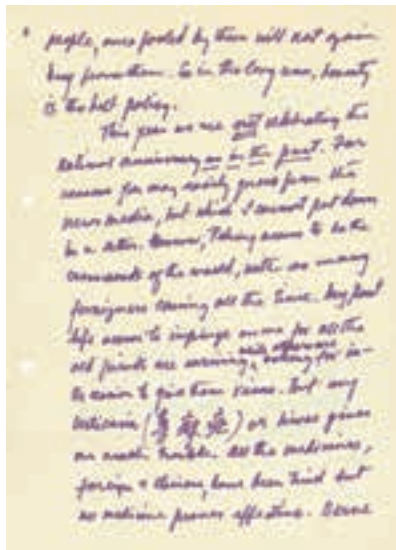 people, once fooled by them will not again
buy from them. So in the long run, honesty
is the best policy.
This year we are not celebrating the
national anniversary as in the past. The
reasons you may easily guess from the
news media, but which I cannot put down
in a letter. However, Peking seems to be the
crossroads of the world, with so many
foreigners coming all the time. My past
life seems to impinge on me for all the
old friends are arriving, asking for in-
to come to give them some. But my
urticaria (荨麻疹) or hives gives
me much trouble. All the medicines,
foreign & Chinese, have been tried but
no medicine proves effective. Some